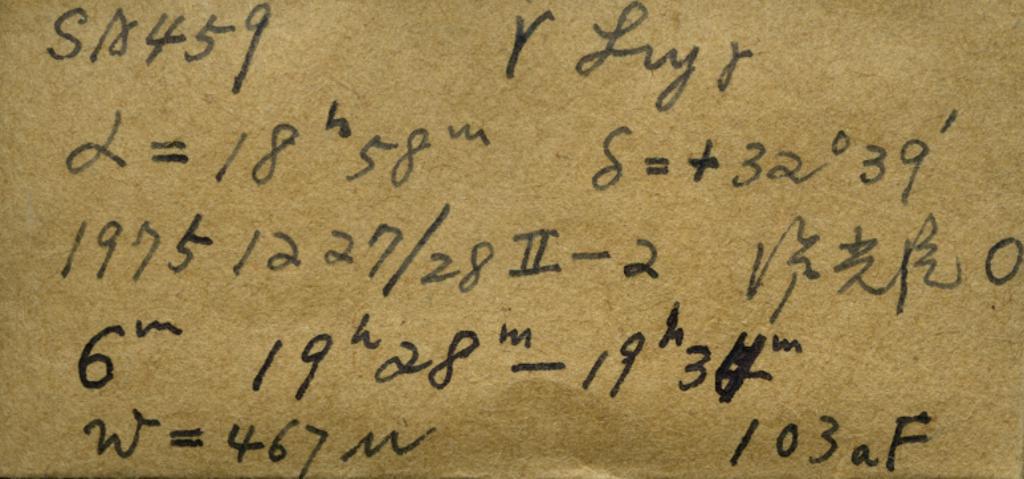 SA459 γ Lyr
α = 18ʰ58ᵐ δ = +32°39′
1975 12 27/28 II-2 0
6ᵐ 19ʰ28ᵐ - 19ʰ34ᵐ
W = 467 μ 103aF